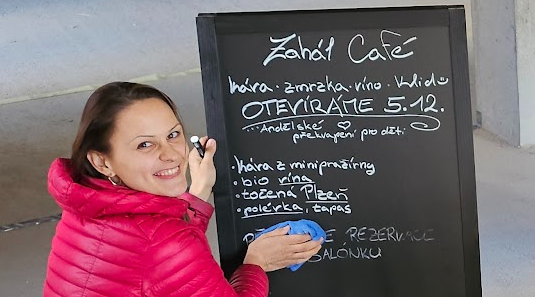 Zahál Café
káva · zmrzka · víno · klid
OTEVÍRÁME 5.12.
...Andělské
překvapení pro děti
· káva z minipražírny
· bio vína
· točená Plzeň
· polévka, tapas
REZERVACE
SALÓNKU